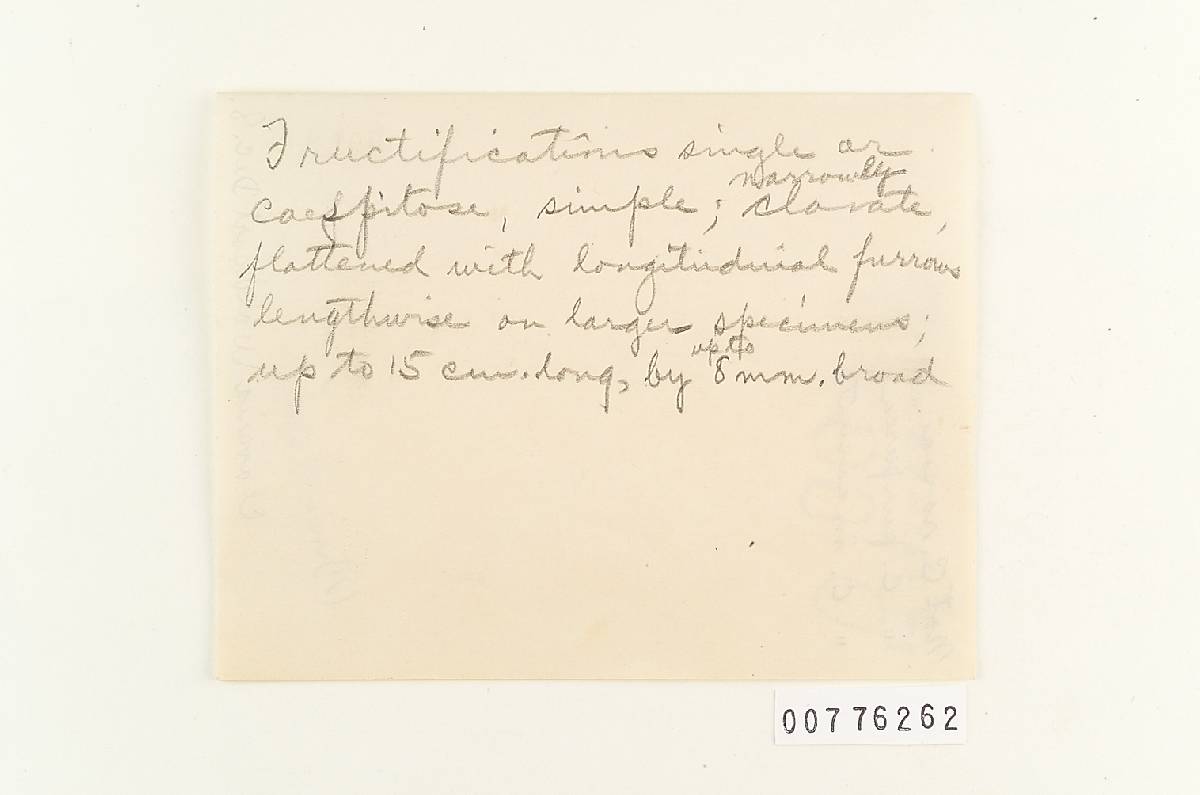 Fructifications single or
caespitose, simple; narrowly clavate,
flattened with longitudinal furrows
lengthwise on larger specimens;
up to 15 cm. long, by up to 8 mm. broad
00776262